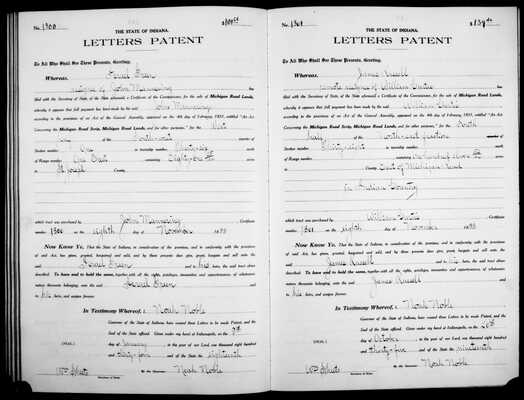 No. 1300
THE STATE OF INDIANA.
LETTERS PATENT
To All Who Shall See These Presents, Greeting:
Whereas, Israel Green
assignee of John Mannering has
filed with the Secretary of State, of the State aforesaid a Certificate of the Commissioner, for the sale of Michigan Road Lands,
whereby it appears that full payment has been made by the said John Mannering
according to the provisions of an Act of the General Assembly, approved on the 4th day of February, 1831, entitled "An Act
Concerning the Michigan Road Scrip, Michigan Road Lands, and for other purposes," for the West
half of the quarter of
Section number One in township number Thirty-six north
of Range number One East containing Eighty
in St Joseph County,
which tract was purchased by John Mannering, Certificate
number 1300 on the eighth day of November 1833
Now Know Ye, That the State of Indiana, in consideration of the premises, and in conformity with the provisions
of said Act, has given, granted, bargained and sold, and by these presents does give, grant, bargain and sell unto the
said Israel Green and to his heirs, the said tract above
described. To have and to hold the same, together with all the rights, privileges, immunities and appurtenances, of whatsoever
nature thereunto belonging, unto the said Israel Green and
to his heirs, and assigns forever.
In Testimony Whereof, I Noah Noble
Governor of the State of Indiana, have caused these Letters to be made Patent, and the
Seal of the State affixed. Given under my hand at Indianapolis, on the 9th
(SEAL) day of January in the year of our Lord, one thousand eight hundred
and thirty-four and of the State the eighteenth
Wm Sheets By the Governor: Noah Noble
Secretary of State.
No. 1301
THE STATE OF INDIANA.
LETTERS PATENT
To All Who Shall See These Presents, Greeting:
Whereas, James Russell
assignee of William has
filed with the Secretary of State, of the State aforesaid a Certificate of the Commissioner, for the sale of Michigan Road Lands,
whereby it appears that full payment has been made by the said William
according to the provisions of an Act of the General Assembly, approved on the 4th day of February, 1831, entitled "An Act
Concerning the Michigan Road Scrip, Michigan Road Lands, and for other purposes," for the South
half of the North-east fraction quarter of
Section number Thirty-eight in township number
of Range number containing
in East of Michigan Road County,
in Indian Country
which tract was purchased by William, Certificate
number 1301 on the eighth day of November 1833
Now Know Ye, That the State of Indiana, in consideration of the premises, and in conformity with the provisions
of said Act, has given, granted, bargained and sold, and by these presents does give, grant, bargain and sell unto the
said James Russell and to his heirs, the said tract above
described. To have and to hold the same, together with all the rights, privileges, immunities and appurtenances, of whatsoever
nature thereunto belonging, unto the said James Russell and
to his heirs, and assigns forever.
In Testimony Whereof, I Noah Noble
Governor of the State of Indiana, have caused these Letters to be made Patent, and the
Seal of the State affixed. Given under my hand at Indianapolis, on the 20th
(SEAL) day of October in the year of our Lord, one thousand eight hundred
and thirty-four and of the State the nineteenth
Wm Sheets By the Governor: Noah Noble
Secretary of State.